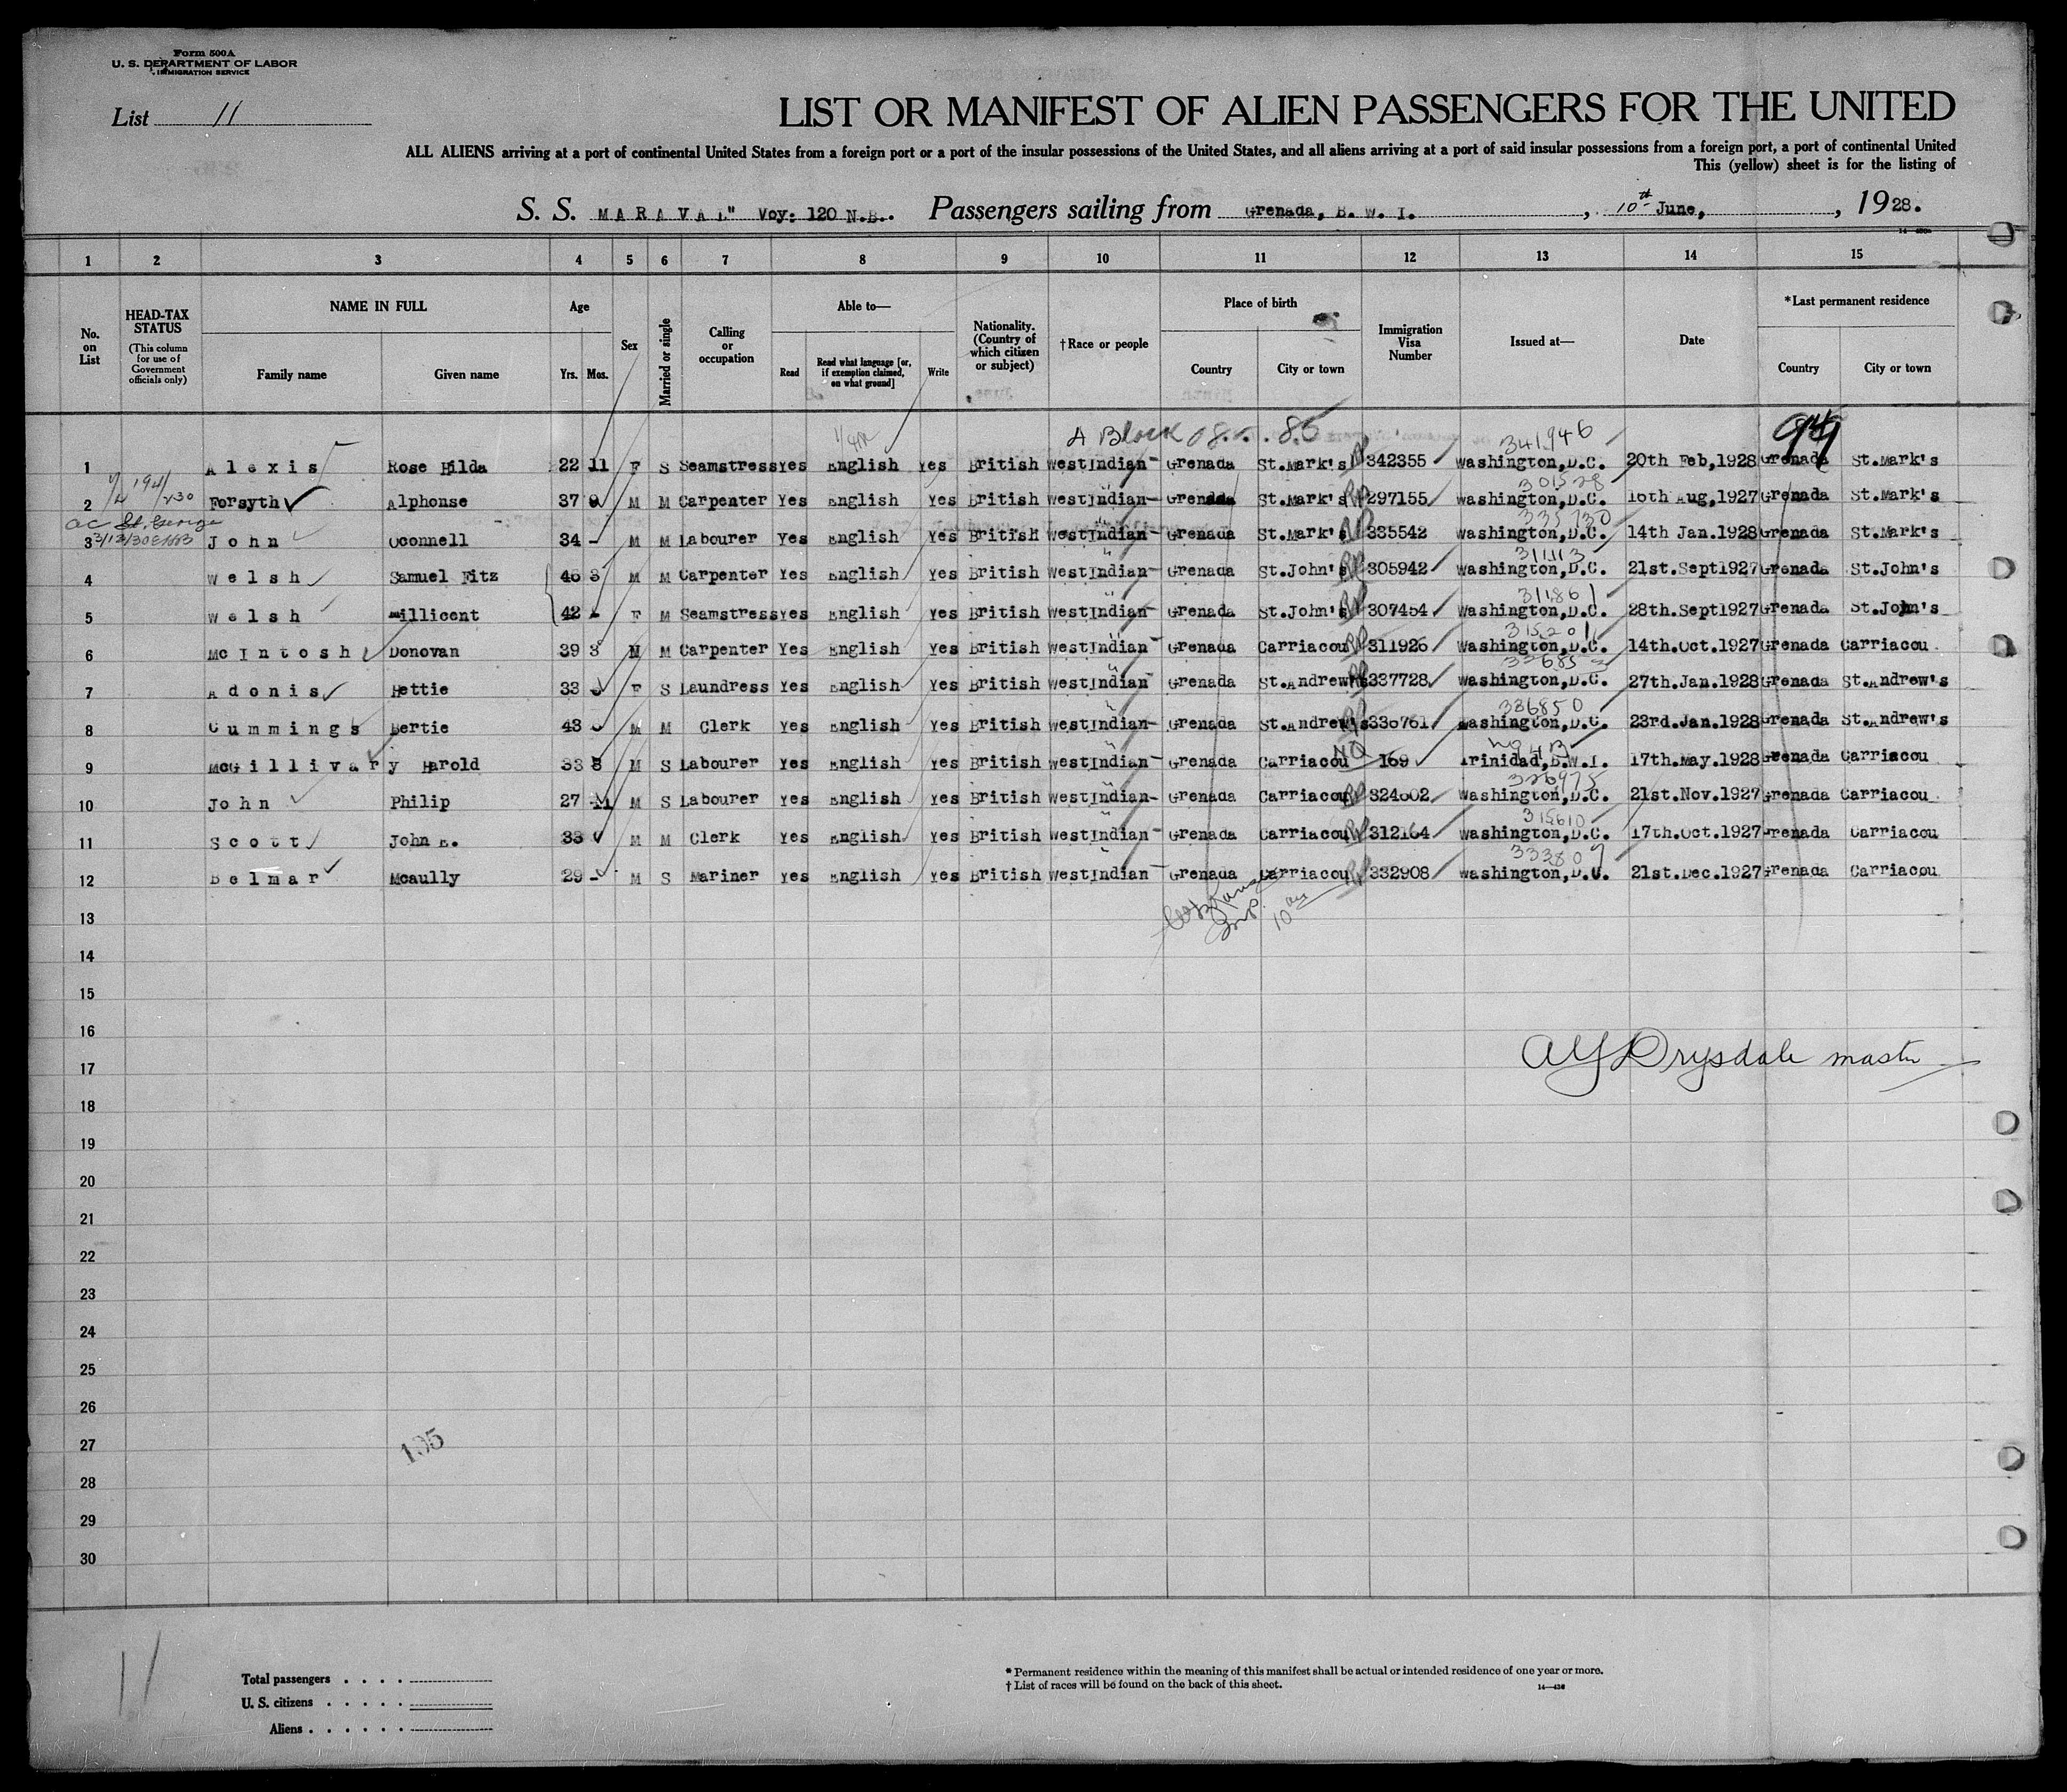 Form 500A
U. S. DEPARTMENT OF LABOR
IMMIGRATION SERVICE
List 11
LIST OR MANIFEST OF ALIEN PASSENGERS FOR THE UNITED
ALL ALIENS arriving at a port of continental United States from a foreign port or a port of the insular possessions of the United States, and all aliens arriving at a port of said insular possessions from a foreign port, a port of continental United
This (yellow) sheet is for the listing of
S. S. MARAVAL" Voy: 120 N.B. Passengers sailing from Grenada, B. W. I. , 10th June, , 1928.
1 2 3 4 5 6 7 8 9 10 11 12 13 14 15
No. on List
HEAD-TAX STATUS (This column for use of Government officials only)
NAME IN FULL Family name Given name
Age Yrs. Mos.
Sex
Married or single
Calling or occupation
Able to— Read Read what language [or, if exemption claimed, on what ground] Write
Nationality. (Country of which citizen or subject)
†Race or people
Place of birth Country City or town
Immigration Visa Number
Issued at—
Date
*Last permanent residence Country City or town
A Block
341946
1 Alexis Rose Hilda 22 11 F S Seamstress Yes English Yes British West Indian Grenada St.Mark's 342355 Washington,D.C. 20th Feb,1928 Grenada St.Mark's
301528
2 Forsyth Alphonse 37 M M Carpenter Yes English Yes British West Indian Grenada St.Mark's 297155 Washington,D.C. 16th Aug,1927 Grenada St.Mark's
335730
3 John Oconnell 34 - M M Labourer Yes English Yes British West Indian Grenada St.Mark's 335542 Washington,D.C. 14th Jan.1928 Grenada St.Mark's
31113
4 Welsh Samuel Fitz 46 3 M M Carpenter Yes English Yes British West Indian Grenada St.John's 305942 Washington,D.C. 21st.Sept1927 Grenada St.John's
311861
5 Welsh Millicent 42 - F M Seamstress Yes English Yes British West Indian Grenada St.John's 307454 Washington,D.C. 28th.Sept1927 Grenada St.John's
315201
6 McIntosh Donovan 39 3 M M Carpenter Yes English Yes British West Indian Grenada Carriacou 311926 Washington,D.C. 14th.Oct.1927 Grenada Carriacou
7 Adonis Hettie 33 F S Laundress Yes English Yes British West Indian Grenada St.Andrew's 337728 Washington,D.C. 27th.Jan.1928 Grenada St.Andrew's
336850
8 Cummings Bertie 43 M M Clerk Yes English Yes British West Indian Grenada St.Andrew's 336761 Washington,D.C. 23rd.Jan.1928 Grenada St.Andrew's
9 McGillivary Harold 33 8 M S Labourer Yes English Yes British West Indian Grenada Carriacou NQ 169 Trinidad,B.W.I. 17th.May.1928 Grenada Carriacou
326975
10 John Philip 27 M S Labourer Yes English Yes British West Indian Grenada Carriacou 324602 Washington,D.C. 21st.Nov.1927 Grenada Carriacou
315610
11 Scott John E. 33 M M Clerk Yes English Yes British West Indian Grenada Carriacou 312164 Washington,D.C. 17th.Oct.1927 Grenada Carriacou
333807
12 Belmar Mcaully 29 - M S Mariner Yes English Yes British West Indian Grenada Carriacou 332908 Washington,D.C. 21st.Dec.1927 Grenada Carriacou
13
14
15
16
17
AYDrysdale master
18
19
20
21
22
23
24
25
26
27
28
29
30
11
Total passengers
U. S. citizens
Aliens
* Permanent residence within the meaning of this manifest shall be actual or intended residence of one year or more.
† List of races will be found on the back of this sheet.